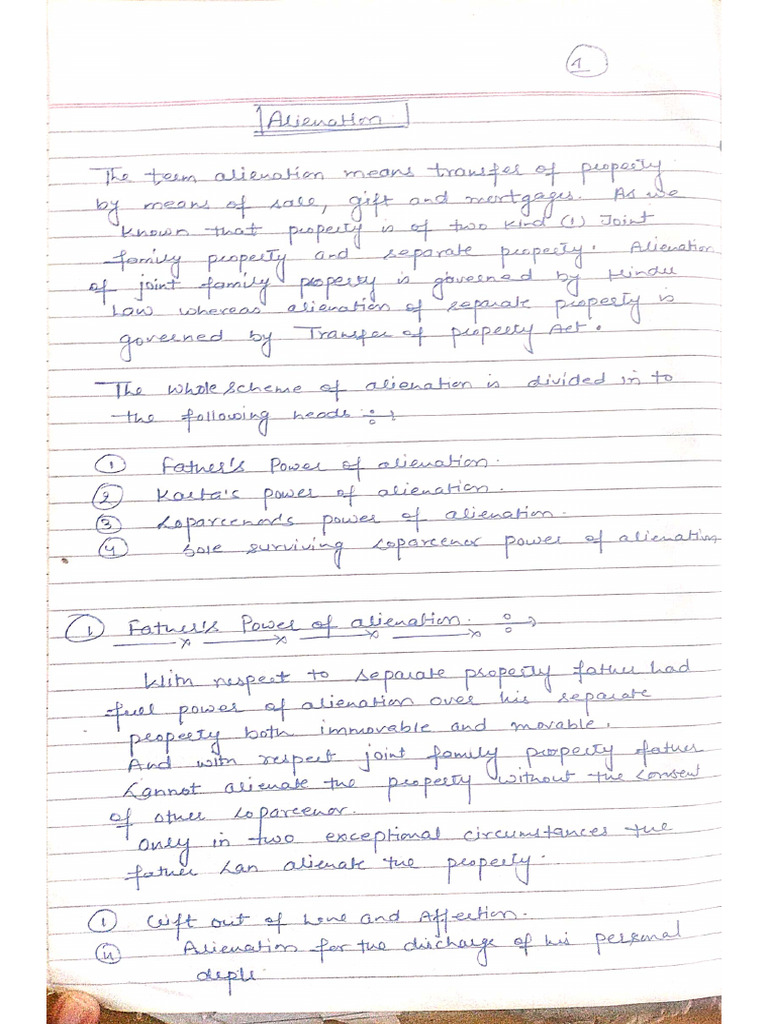 1
Alienation
The term alienation means transfer of property
by means of sale, gift and mortgages. As we
known that property is of two kind (1) Joint
family property and separate property. Alienation
of joint family property is governed by Hindu
Law whereas alienation of separate property is
governed by Transfer of property Act.
The whole scheme of alienation is divided in to
the following heads :-
1 Father's Power of alienation.
2 Karta's power of alienation.
3 Coparcenor's power of alienation.
4 Sole surviving Coparcenor power of alienation
1 Father's Power of alienation. :-
With respect to separate property father had
full power of alienation over his separate
property both immovable and movable.
And with respect joint family property father
Cannot alienate the property without the Consent
of other Coparcenor.
Only in two exceptional circumstances the
father Can alienate the property.
i Gift out of Love and Affection.
ii Alienation for the discharge of his personal
deple.